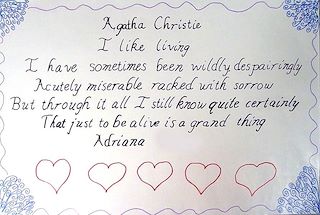 Agatha Christie
I like living
I have sometimes been wildly despairingly
Acutely miserable racked with sorrow
But through it all I still know quite certainly
That just to be alive is a grand thing
Adriana